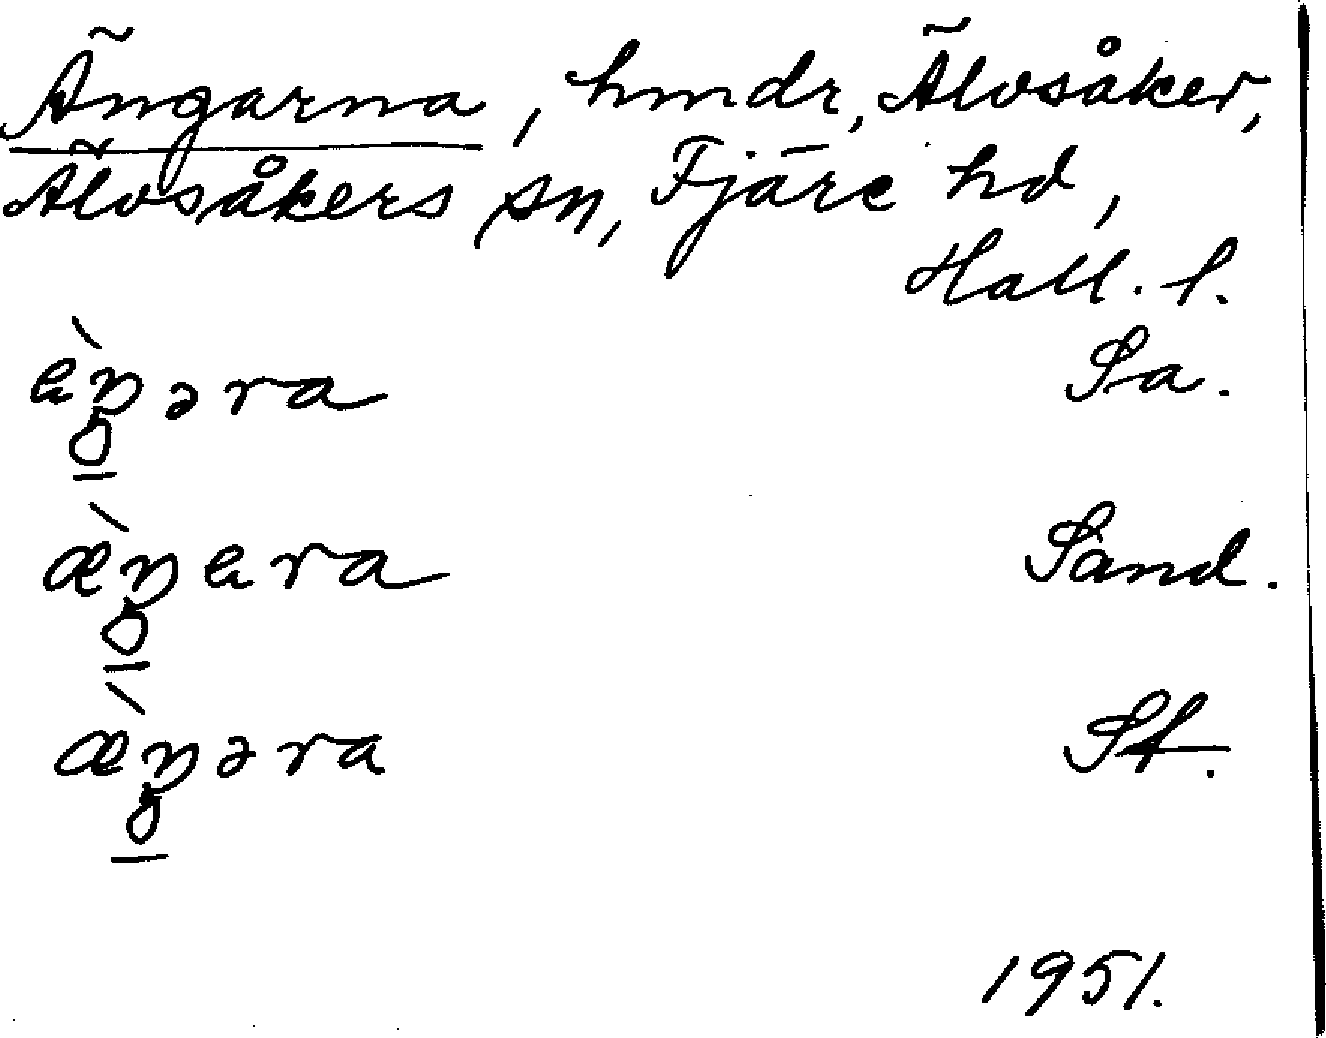 Ängarna, hmdr, Älvsåker,
Älvsåkers sn, Fjäre hd,
Hall. l.
èŋəra Sa.
æ̀ŋera Sand.
æ̀ŋəra St.
1951.